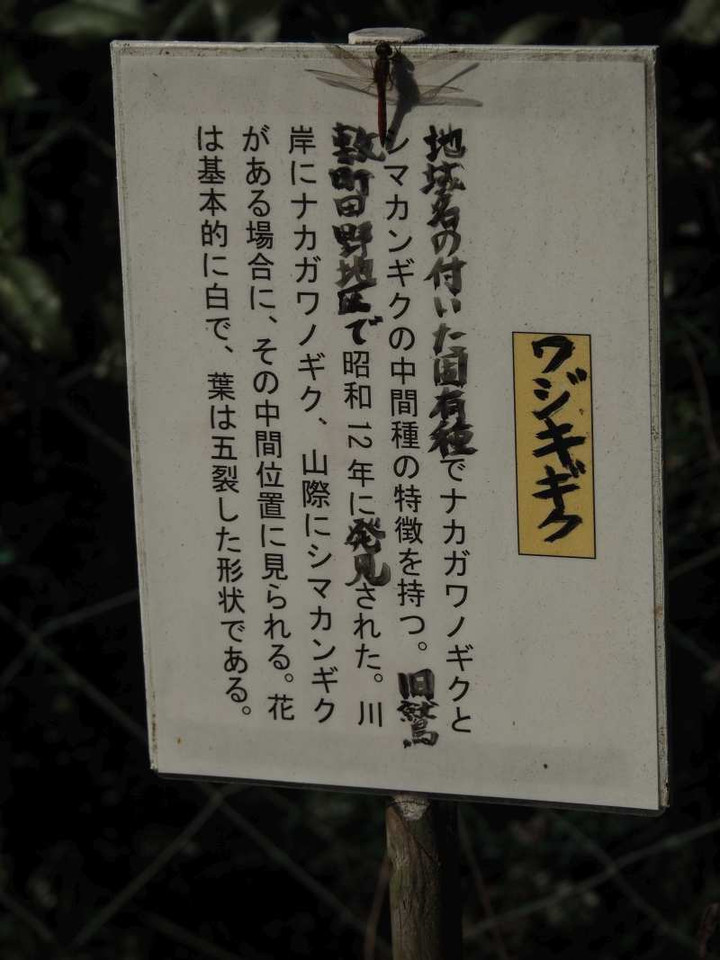 ワジキギク
地域名の付いた固有種でナカガワノギクと
シマカンギクの中間種の特徴を持つ。旧鷲
敷町田野地区で昭和12年に発見された。川
岸にナカガワノギク、山際にシマカンギク
がある場合に、その中間位置に見られる。花
は基本的に白で、葉は五裂した形状である。